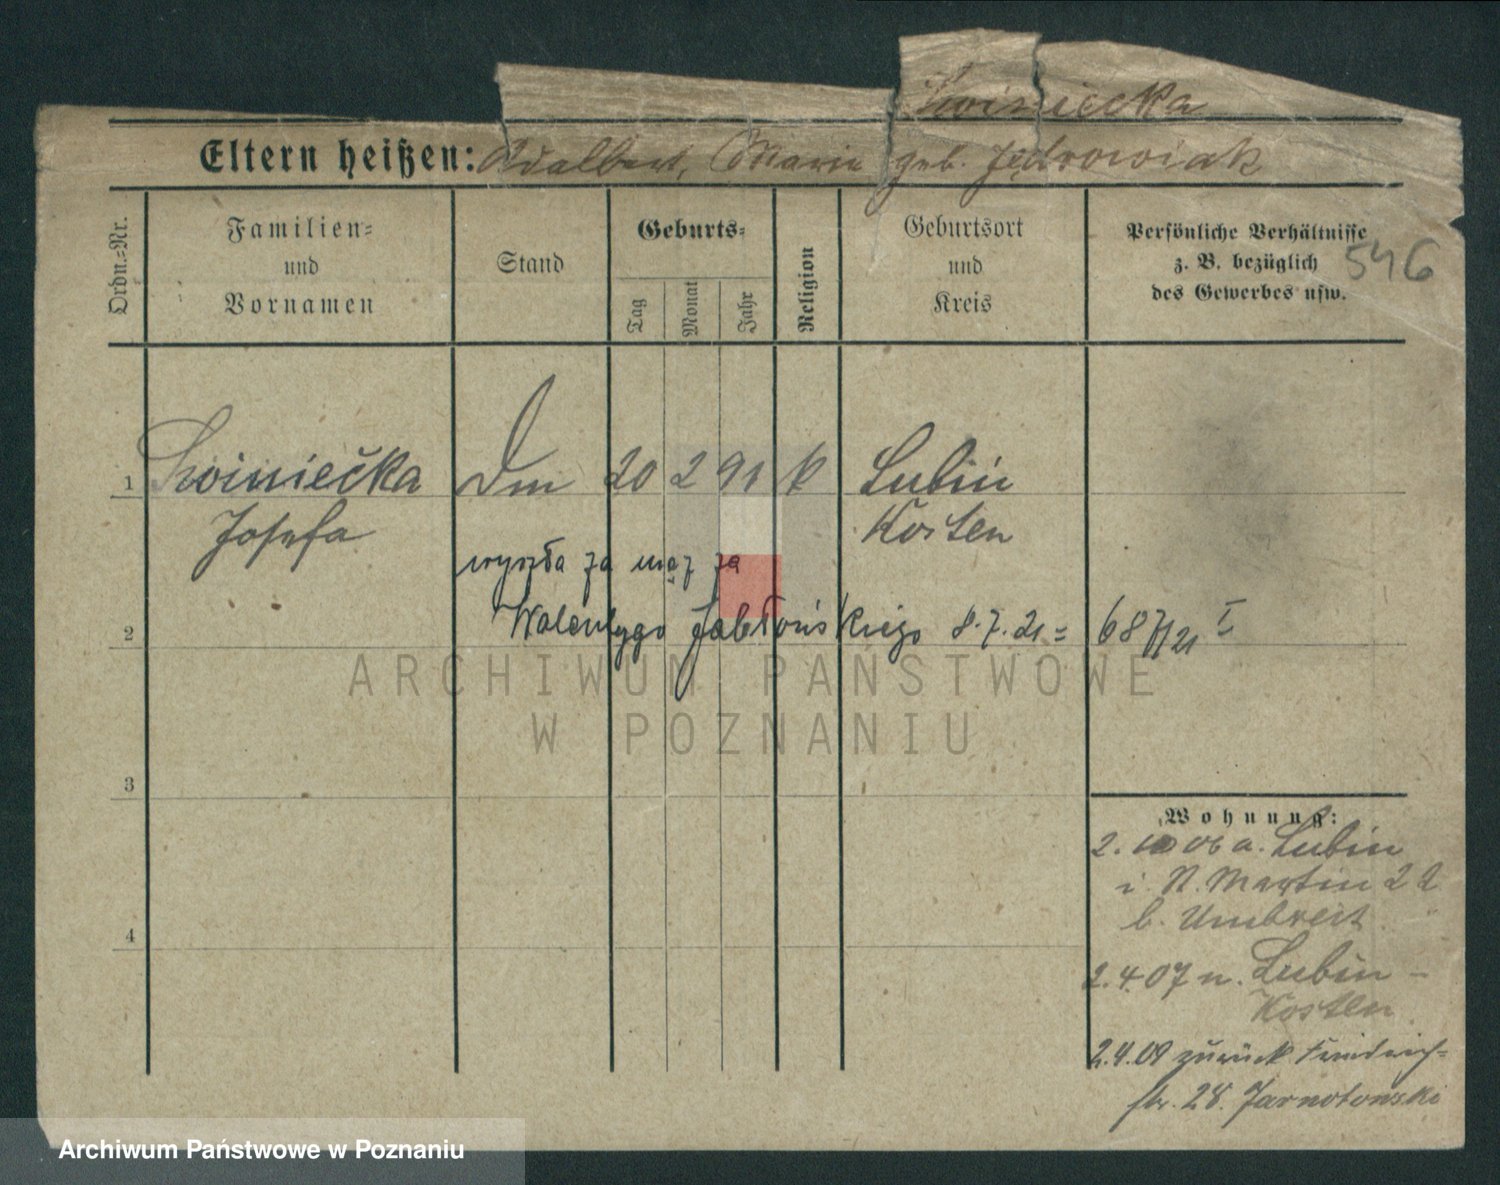 Lwiniecka
Eltern heißen: Adalbert, Marie geb. Jędrowiak
Ordn.=Nr.
Familien=
und
Vornamen
Stand
Geburts=
Tag
Monat
Jahr
Religion
Geburtsort
und
Kreis
Persönliche Verhältnisse
z. B. bezüglich
des Gewerbes usw.
546
1 Lwiniečka Dm 20 2 91 k Lubiń
Josefa Kosten
wyszła za mąż za
2 Walentygo Jabłońskiego 8.7.21 = 687/21 I
ARCHIWUM PAŃSTWOWE
W POZNANIU
3
Wohnung:
2. 10 06 a. Lubin
i. St. Martin 22
b. Umbreit
4
2.4.07 n. Lubin -
Kosten
2.4.09 zurück Friedrich=
str. 28. Jarnotowski
Archiwum Państwowe w Poznaniu